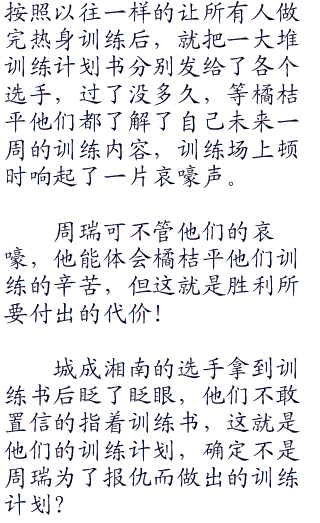 按照以往一样的让所有人做
完热身训练后，就把一大堆
训练计划书分别发给了各个
选手，过了没多久，等橘桔
平他们都了解了自己未来一
周的训练内容，训练场上顿
时响起了一片哀嚎声。
周瑞可不管他们的哀
嚎，他能体会橘桔平他们训
练的辛苦，但这就是胜利所
要付出的代价！
城成湘南的选手拿到训
练书后眨了眨眼，他们不敢
置信的指着训练书，这就是
他们的训练计划，确定不是
周瑞为了报仇而做出的训练
计划？